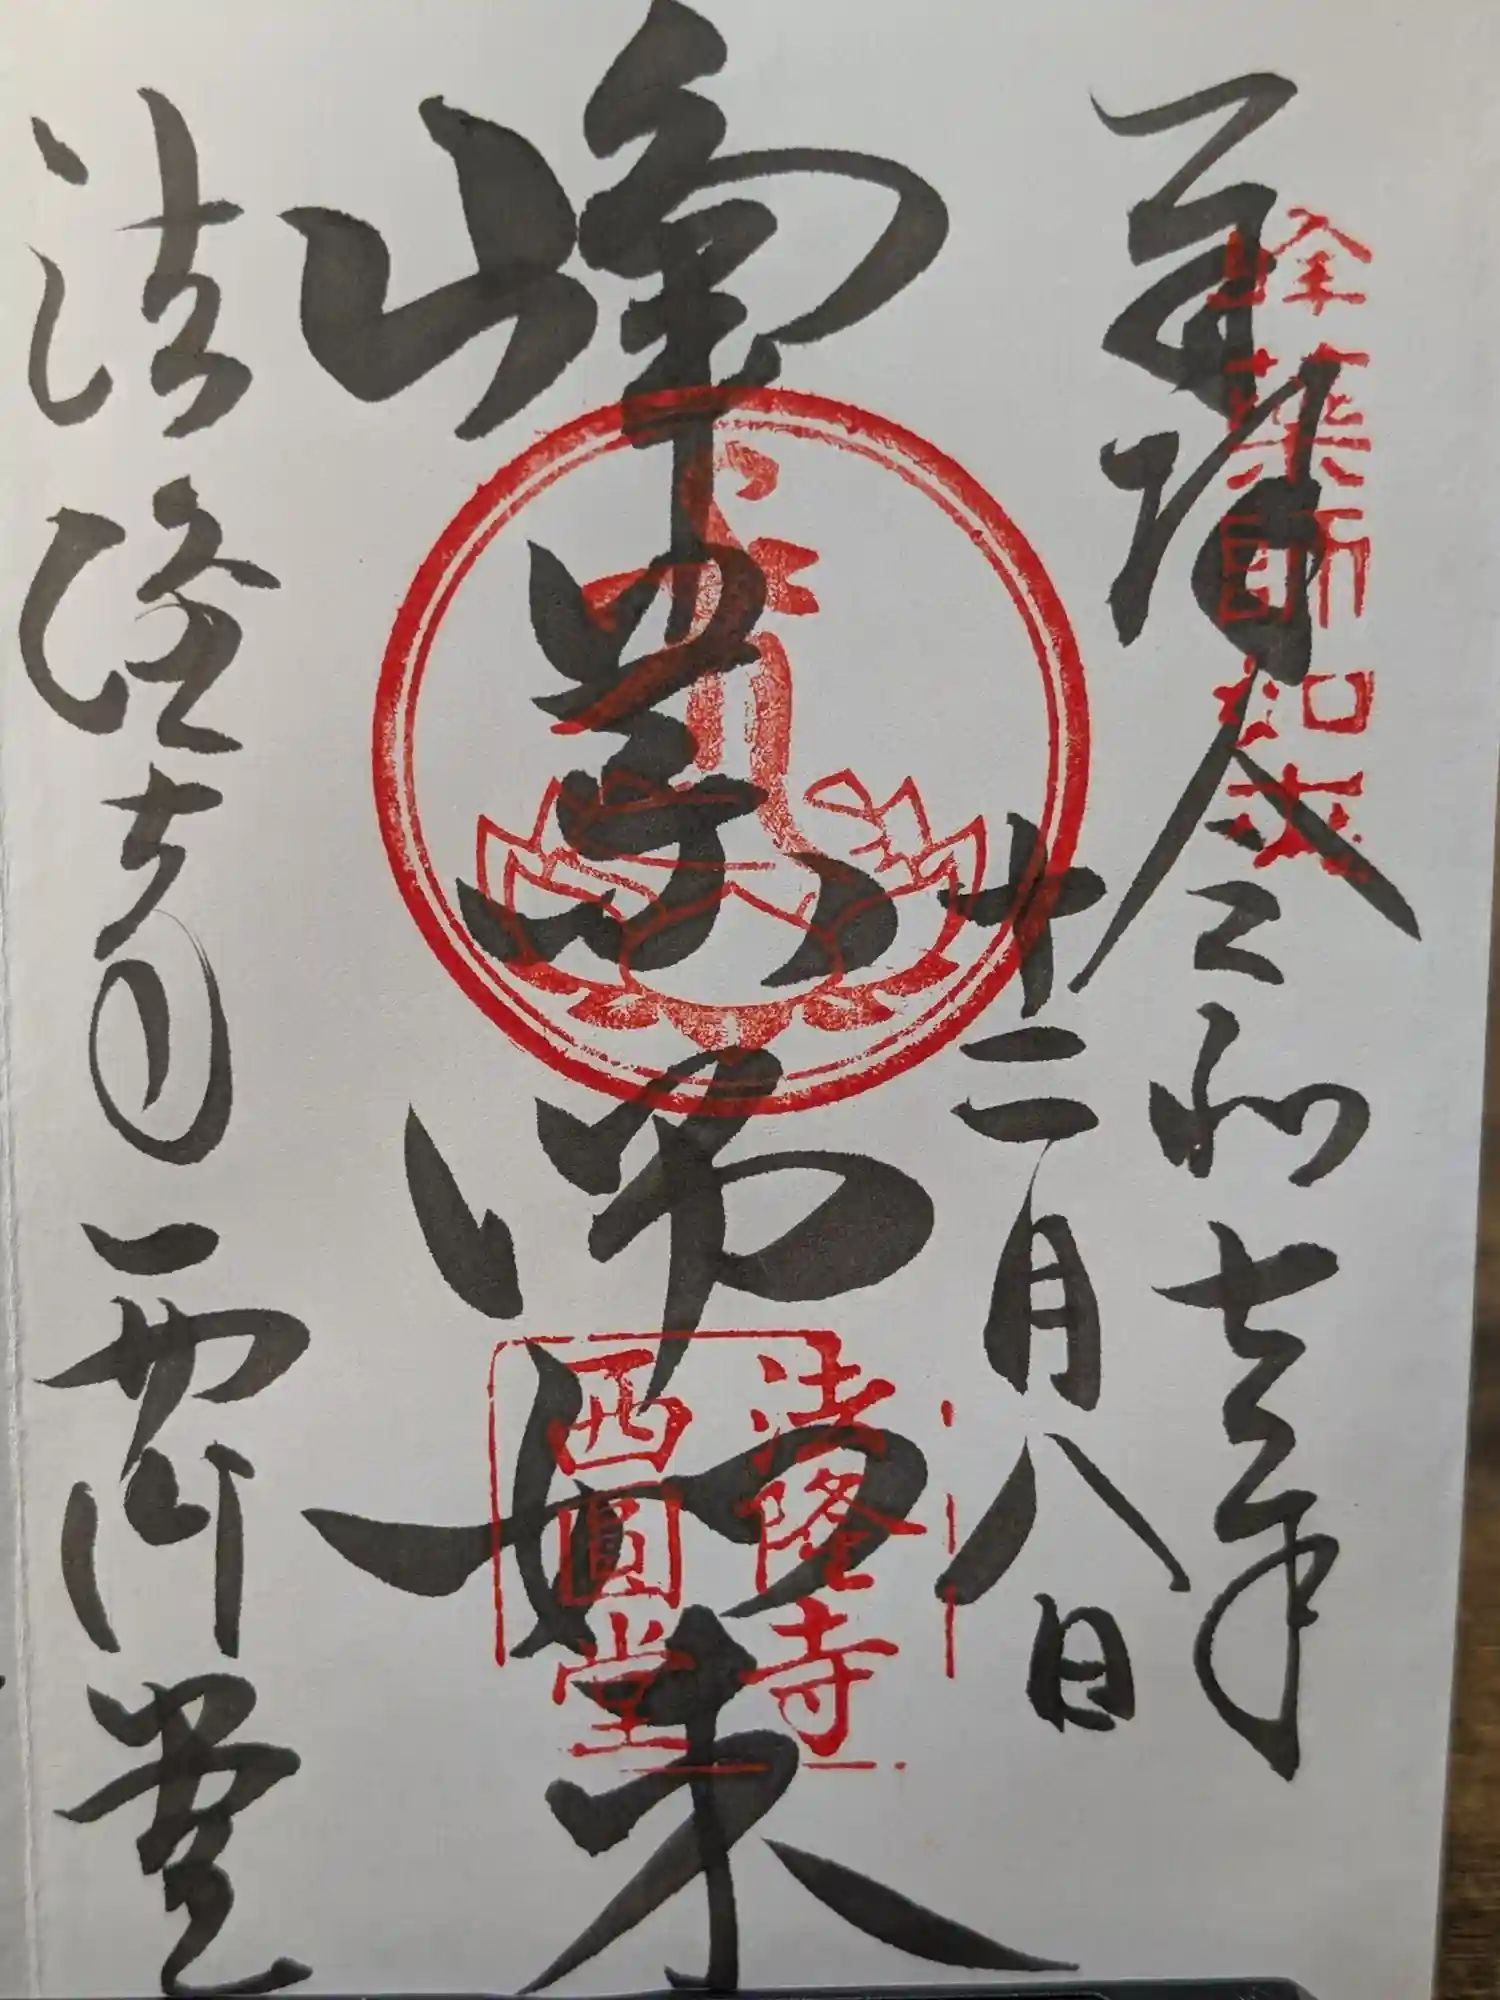 奉拝 令和年
十二月八日
峰薬師如来
法隆寺 西円堂
峰藥師如来
法隆寺
西圓堂